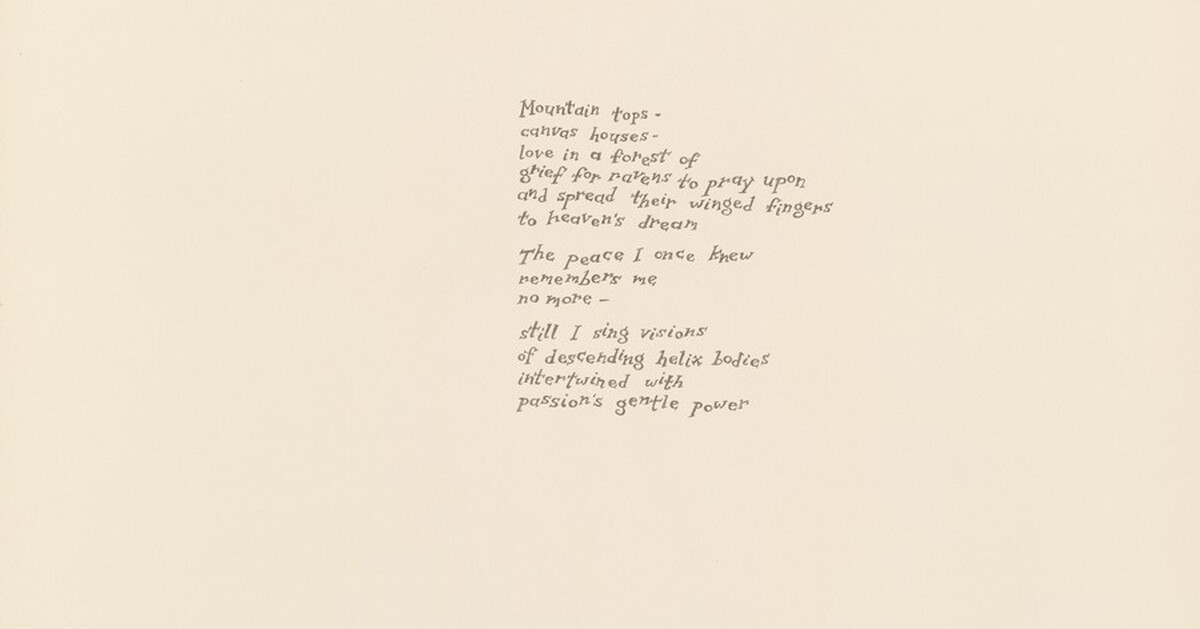 Mountain tops -
canvas houses -
love in a forest of
grief for ravens to pray upon
and spread their winged fingers
to heaven's dream
The peace I once knew
remembers me
no more -
still I sing visions
of descending helix bodies
intertwined with
passion's gentle power